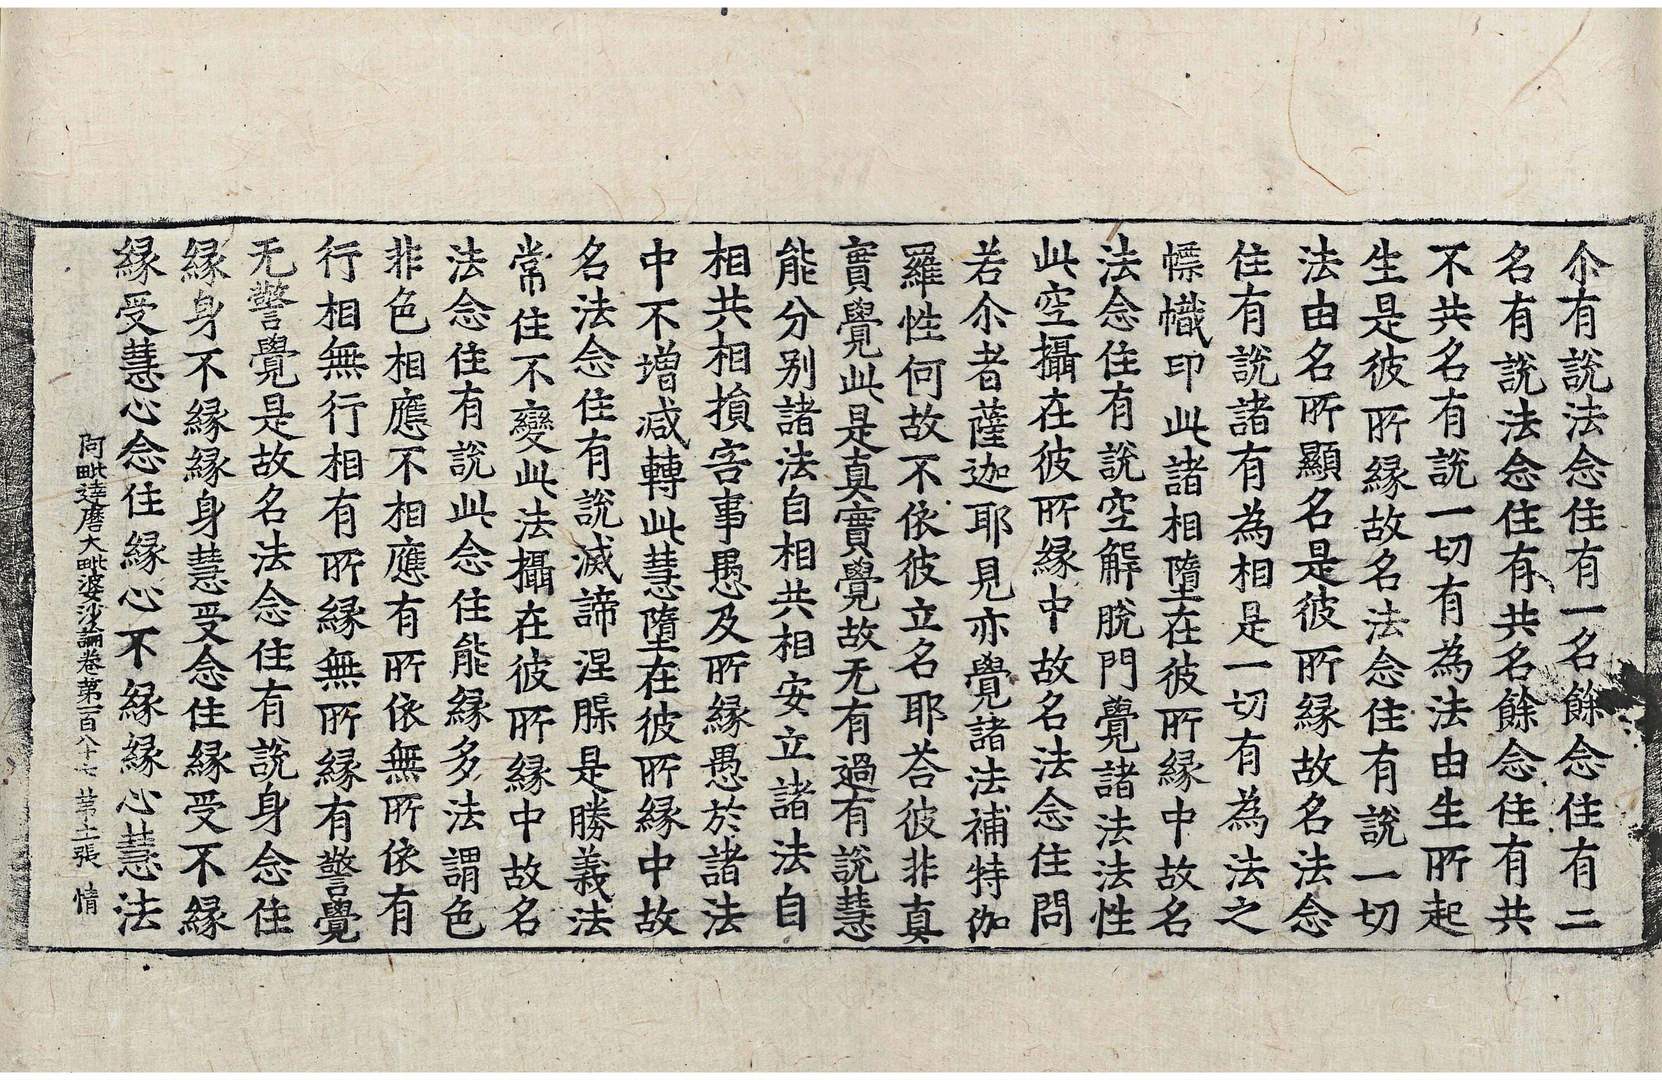 尒有說法念住有一名餘念住有二
名有說法念住有共名餘念住有共
不共名有說一切有為法由生所起
生是彼所緣故名法念住有說一切
法由名所顯名是彼所緣故名法念
住有說諸有為相是一切有為法之
幖幟印此諸相墮在彼所緣中故名
法念住有說空解脫門覺諸法法性
此空攝在彼所緣中故名法念住問
若尒者薩迦耶見亦覺諸法補特伽
羅性何故不依彼立名耶荅彼非真
實覺此是真實覺故无有過有說慧
能分別諸法自相共相安立諸法自
相共相損害事愚及所緣愚於諸法
中不增減轉此慧墮在彼所緣中故
名法念住有說滅諦涅槃是勝義法
常住不變此法攝在彼所緣中故名
法念住有說此念住能緣多法謂色
非色相應不相應有所依無所依有
行相無行相有所緣無所緣有警覺
无警覺是故名法念住有說身念住
緣身不緣緣身慧受念住緣受不緣
緣受慧心念住緣心不緣緣心慧法
阿毗達磨大毗婆沙論卷第一百八十七 苐十一張 情